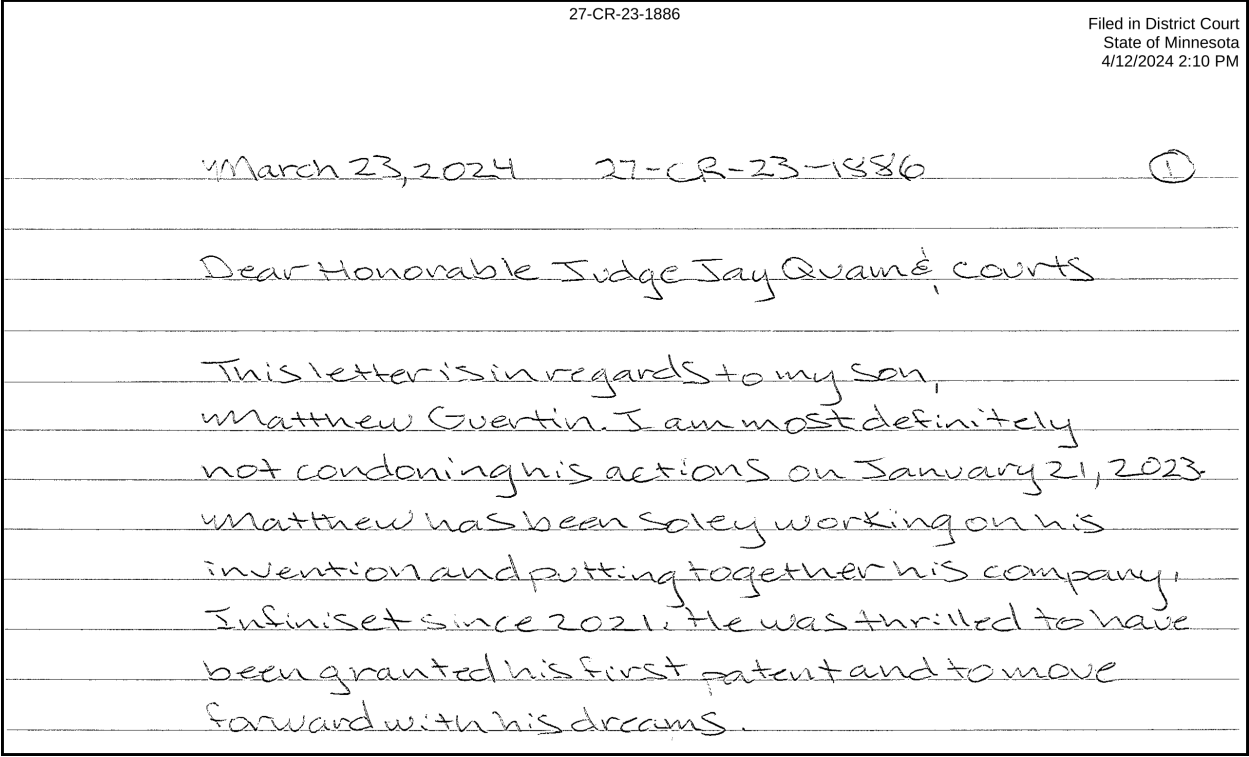 27-CR-23-1886
Filed in District Court
State of Minnesota
4/12/2024 2:10 PM
March 23, 2024 27-CR-23-1886 1
Dear Honorable Judge Jay Quam & courts,
This letter is in regards to my son,
Matthew Guertin. I am most definitely
not condoning his actions on January 21, 2023.
Matthew has been soley working on his
invention and putting together his company,
Infiniset since 2021. He was thrilled to have
been granted his first patent and to move
forward with his dreams.